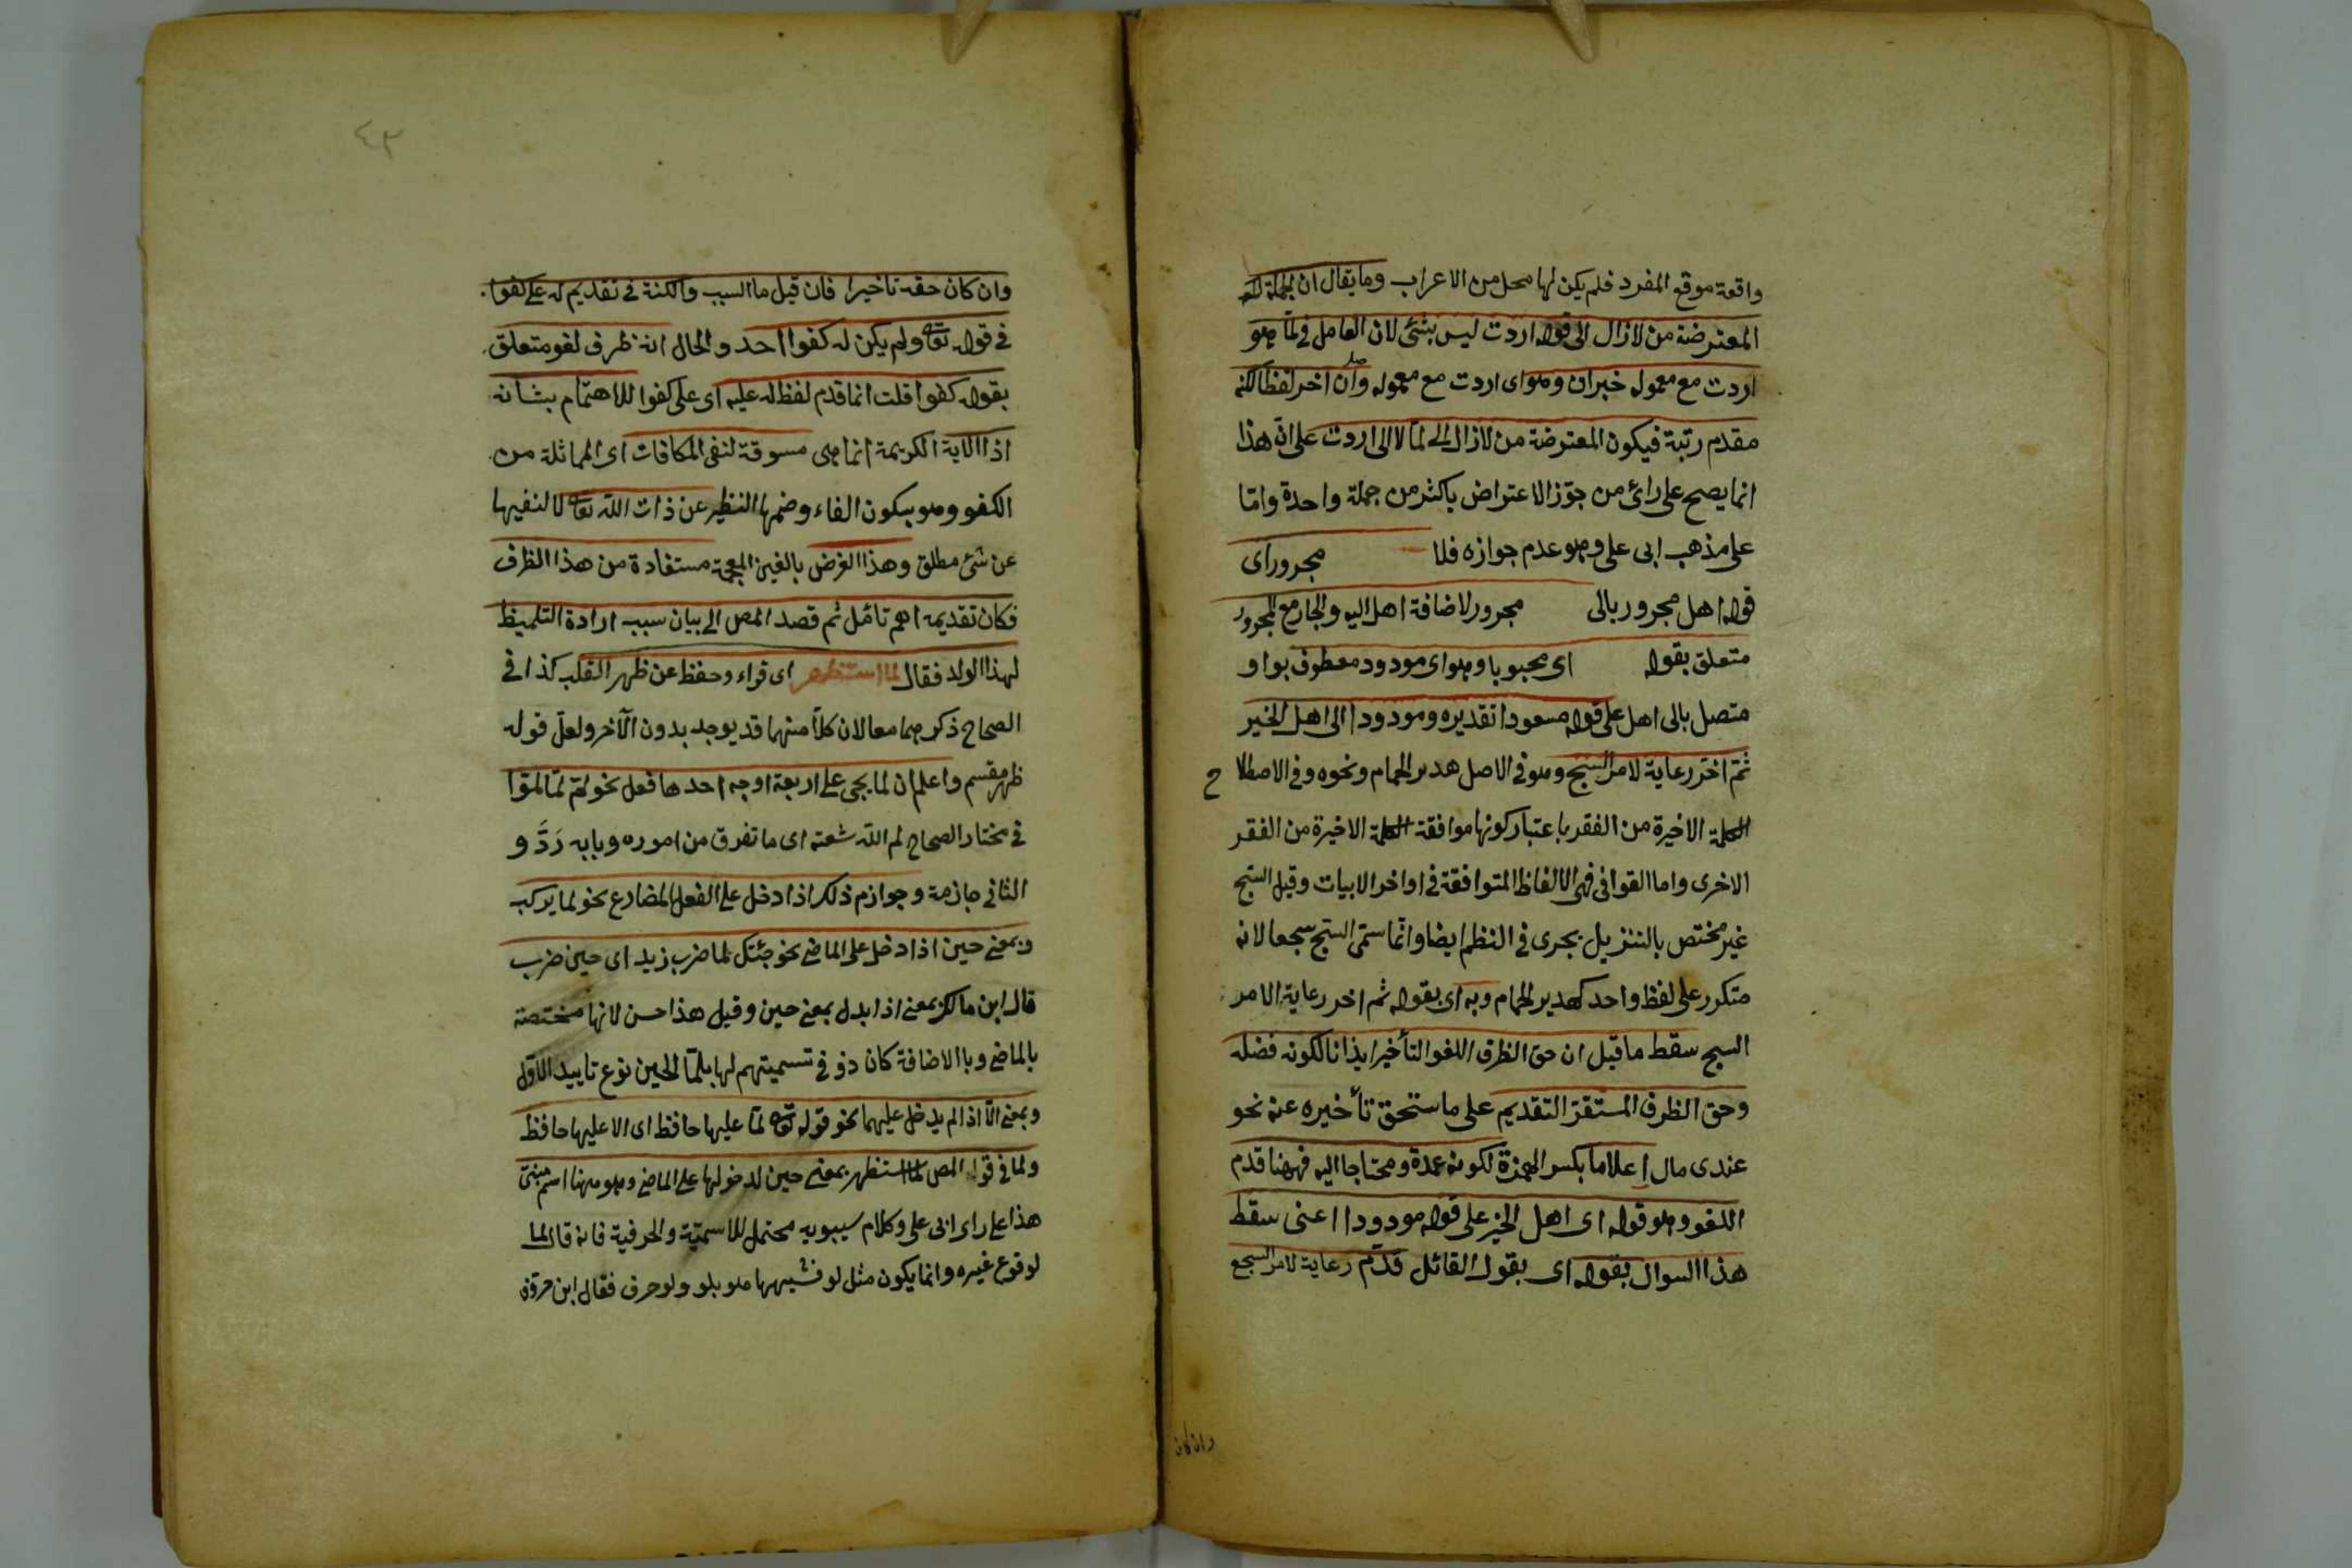 واقعة موقع المفرد فلم يكن لها محل من الاعراب وما يقال ان الجملة
المعترضة من لازال الى قوله اردت ليس بشئ لان العامل في لما هو
اردت مع معموله خبران وهو اى اردت مع معموله وان اخر لفظا لكنه
مقدم رتبة فيكون المعترضة من لازال الى لما لا الى اردت على ان هذا
انما يصح على رائ من جوّز الاعتراض باكثر من جملة واحدة وامّا
على مذهب ابى على وهو عدم جوازه فلا مجرور اى
قوله اهل مجرور بالى مجرور لاضافة اهل اليه والجار مع المجرور
متعلق بقوله اى محبوبا وهو اى مودود معطوف بواو
متصل بالى اهل على قوله مسعودا تقديره ومودودا الى اهل الخير
ثمّ اخّر رعاية لامر السجع وهو في الاصل هدير الحمام ونحوه وفي الاصطلاح
الكلمة الاخيرة من الفقر باعتبار كونها موافقة الكلمة الاخيرة من الفقر
الاخرى واما القوافى فهى الالفاظ المتوافقة في اواخر الابيات وقيل السجع
غير مختص بالتنزيل يجرى في النظم ايضا وانّما سمّى السجع سجعا لانه
متكرر على لفظ واحد كهدير الحمام وبه اى بقوله ثم اخر رعاية الامر
السجع سقط ما قيل ان حق الظرف اللغو التأخير ايذانا لكونه فضله
وحق الظرف المستقرّ التقديم على ما ستحق تأخيره عنه نحو
عندى مال اعلاما بكسر الهمزة لكونه عمدة ومحتاجا اليه فههنا قدم
اللغو وهو قوله اى اهل الخير على قوله مودودا اعنى سقط
هذا السوال بقوله اى بقول القائل قدّم رعاية لامر السجع
وان كان
٤٣
وان كان حقه تاخيرا فان قيل ما السبب والكنة في تقديم له على كفوا
في قوله تعا ولم يكن له كفوا احد والحال انه ظرف لغو متعلق
بقوله كفوا قلت انما قدم لفظ له عليه اى على كفوا للاهتمام بشانه
اذا الاية الكريمة انما هى مسوقة لنفى المكافات اى المماثلة من
الكفو وهو بسكون الفاء وضمها النظير عن ذات الله تعا لا لنفيها
عن شئ مطلق وهذا الغرض بالغين المعجمة مستفادة من هذا الظرف
فكان تقديمه اهم تامّل ثم قصد المص الى بيان سبب ارادة التلميظ
لهذا الولد فقال لما استظهر اى قراء وحفظ عن ظهر القلب كذا في
الصحاح ذكرهما معا لان كلّا منهما قد يوجد بدون الآخر ولعلّ قوله
ظهر مقسم واعلم ان لما يجى على اربعة اوجه احدها فعل نحو لمّ لمّا لموّا
في مختار الصحاح لم الله شعثه اى ما تفرق من اموره وبابه رَدَّ و
الثانى جازمة وجوازم ذلك اذا دخل على الفعل المضارع نحو لما يركب
وبمعنى حين اذا دخل على الماضى نحو جئتك لما ضرب زيد اى حين ضرب
قال ابن مالك بمعنى اذا بدل بمعنى حين وقيل هذا حسن لانها مختصة
بالماضى وبا الاضافة كان ذو في تسميتهم لها بلمّا الحين نوع تاييد الاوّل
وبمعنى الّا اذا لم يدخل عليهما نحو قوله تعا لمّا عليها حافظ اى الا عليها حافظ
ولما في قول المص لما استظهر بمعنى حين لدخولها على الماضى وهو ههنا اسم مبنى
هذا على راى ابى على وكلام سيبويه محتمل للاسميّة والحرفية فانه قال لما
لوقوع غيره وانما يكون مثل لو فشبهها هو بلو ولو حرف فقال ابن خروف